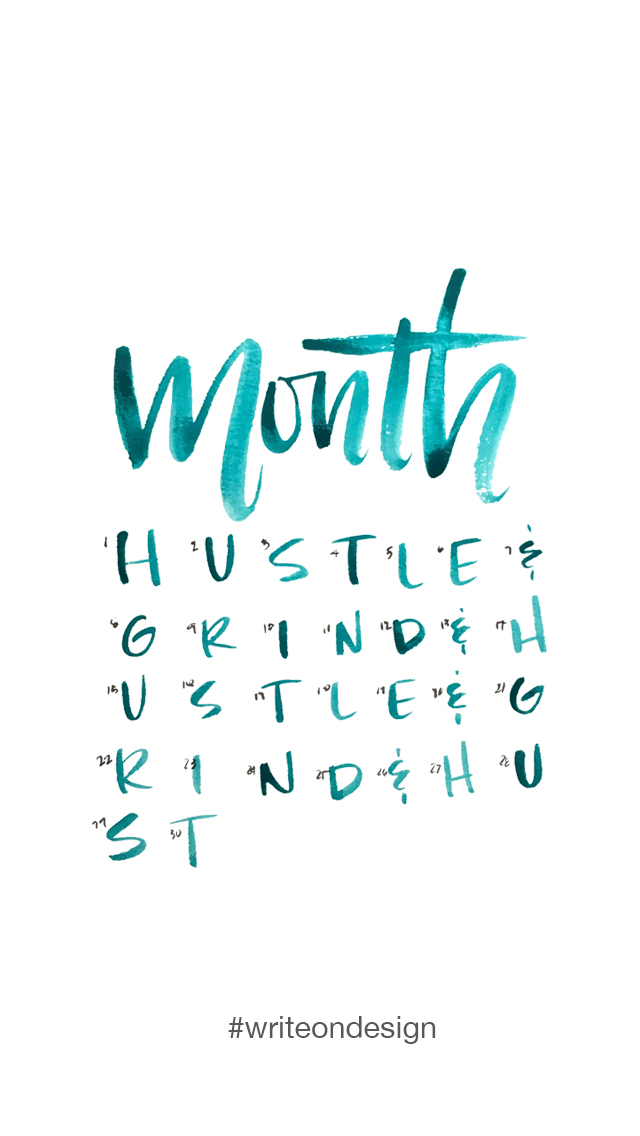 month
1 H 2 U 3 S 4 T 5 L 6 E 7 &
8 G 9 R 10 I 11 N 12 D 13 & 14 H
15 U 16 S 17 T 18 L 19 E 20 & 21 G
22 R 23 I 24 N 25 D 26 & 27 H 28 U
29 S 30 T
#writeondesign